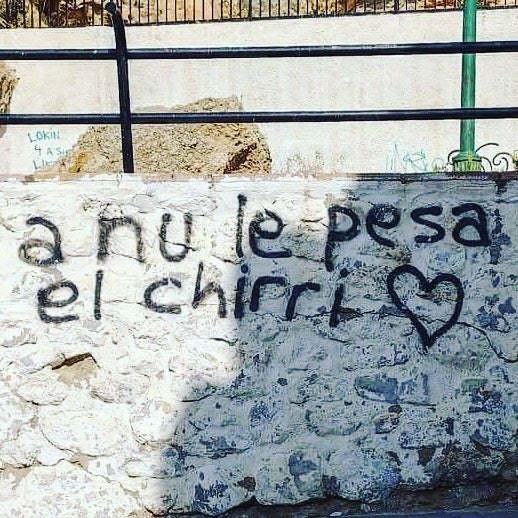 LOKIN
4 A SU
LIK
a nu le pesa
el chirri